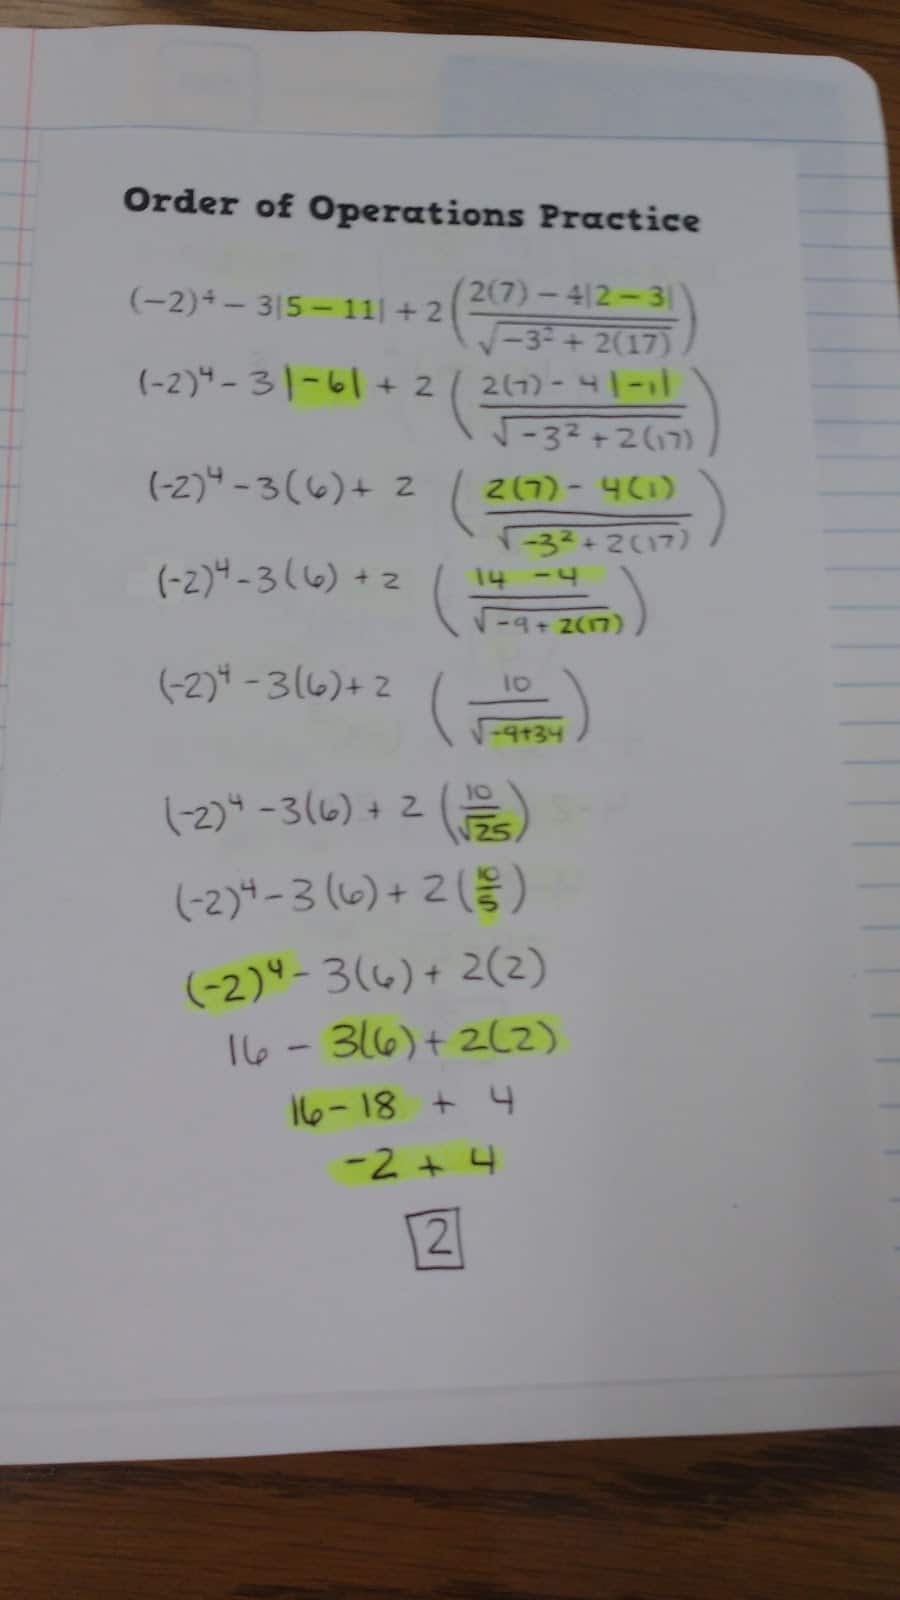 Order of Operations Practice
(−2)⁴ − 3|5 − 11| + 2((2(7) − 4|2 − 3|)/√(−3² + 2(17)))
(-2)⁴ - 3|-6| + 2((2(7) - 4|-1|)/√(-3² + 2(17)))
(-2)⁴ - 3(6) + 2((2(7) - 4(1))/√(-3² + 2(17)))
(-2)⁴ - 3(6) + 2((14 - 4)/√(-9 + 2(17)))
(-2)⁴ - 3(6) + 2(10/√(-9+34))
(-2)⁴ - 3(6) + 2(10/√25)
(-2)⁴ - 3(6) + 2(10/5)
(-2)⁴ - 3(6) + 2(2)
16 - 3(6) + 2(2)
16 - 18 + 4
-2 + 4
2